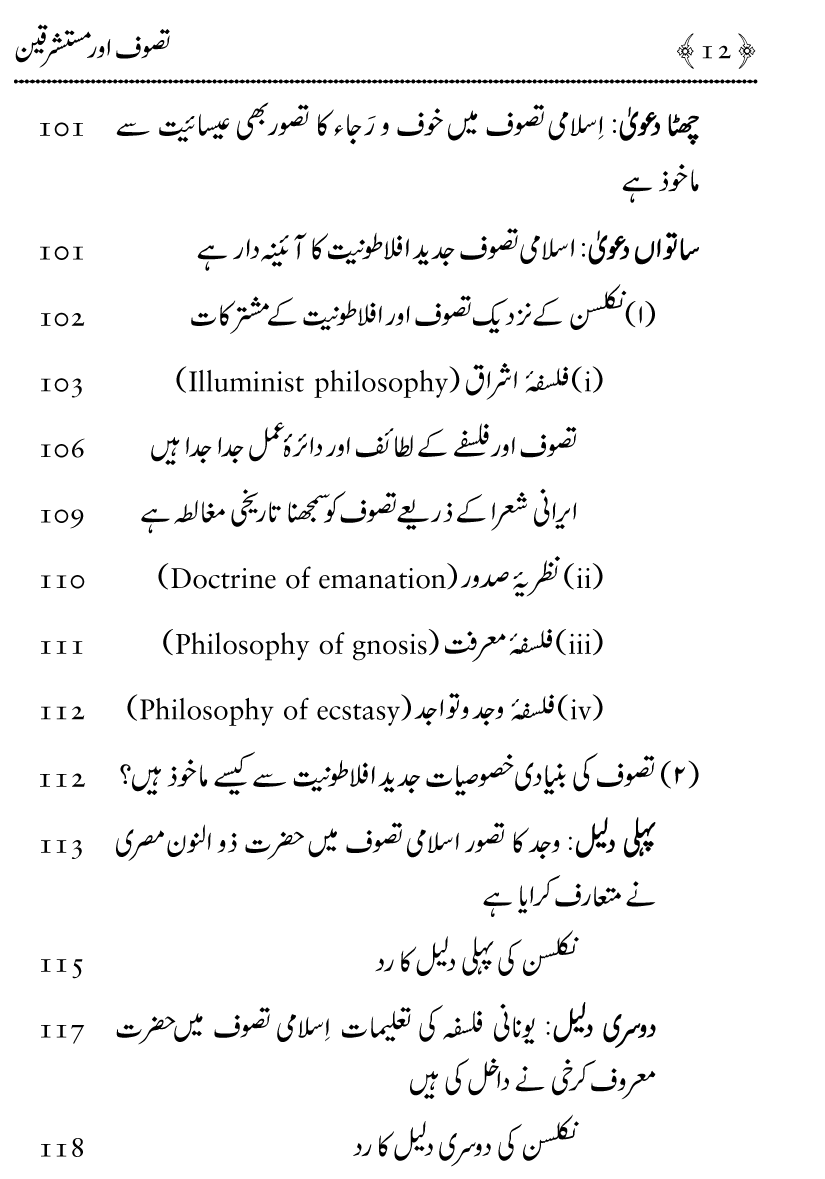 تصوف اور مستشرقین ﴿12﴾
چھٹا دعویٰ: اِسلامی تصوف میں خوف و رَجاء کا تصور بھی عیسائیت سے 101
ماخوذ ہے
ساتواں دعویٰ: اسلامی تصوف جدید افلاطونیت کا آئینہ دار ہے 101
(۱) نکلسن کے نزدیک تصوف اور افلاطونیت کے مشترکات 102
(i) فلسفۂ اشراق (Illuminist philosophy) 103
تصوف اور فلسفے کے لطائف اور دائرۂ عمل جدا جدا ہیں 106
ایرانی شعرا کے ذریعے تصوف کو سمجھنا تاریخی مغالطہ ہے 109
(ii) نظریۂ صدور (Doctrine of emanation) 110
(iii) فلسفۂ معرفت (Philosophy of gnosis) 111
(iv) فلسفۂ وجد و تواجد (Philosophy of ecstasy) 112
(۲) تصوف کی بنیادی خصوصیات جدید افلاطونیت سے کیسے ماخوذ ہیں؟ 112
پہلی دلیل: وجد کا تصور اسلامی تصوف میں حضرت ذو النون مصری 113
نے متعارف کرایا ہے
نکلسن کی پہلی دلیل کا رد 115
دوسری دلیل: یونانی فلسفہ کی تعلیمات اِسلامی تصوف میں حضرت 117
معروف کرخی نے داخل کی ہیں
نکلسن کی دوسری دلیل کا رد 118